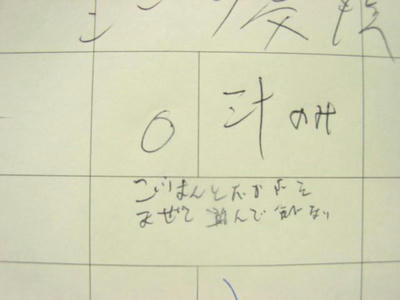 0 汁 のみ
ごはんとおかずを
まぜて 遊んで 食べない